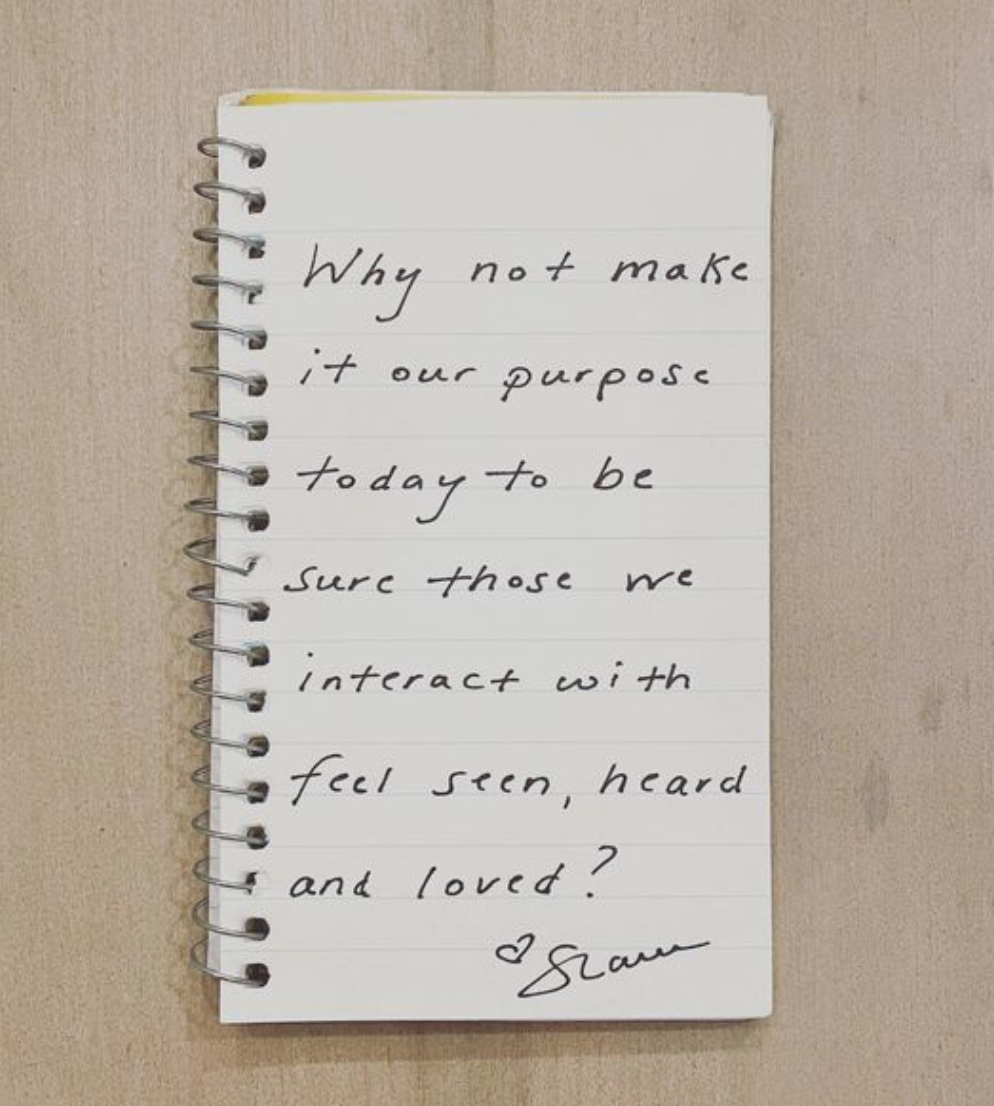 Why not make
it our purpose
today to be
sure those we
interact with
feel seen, heard
and loved?